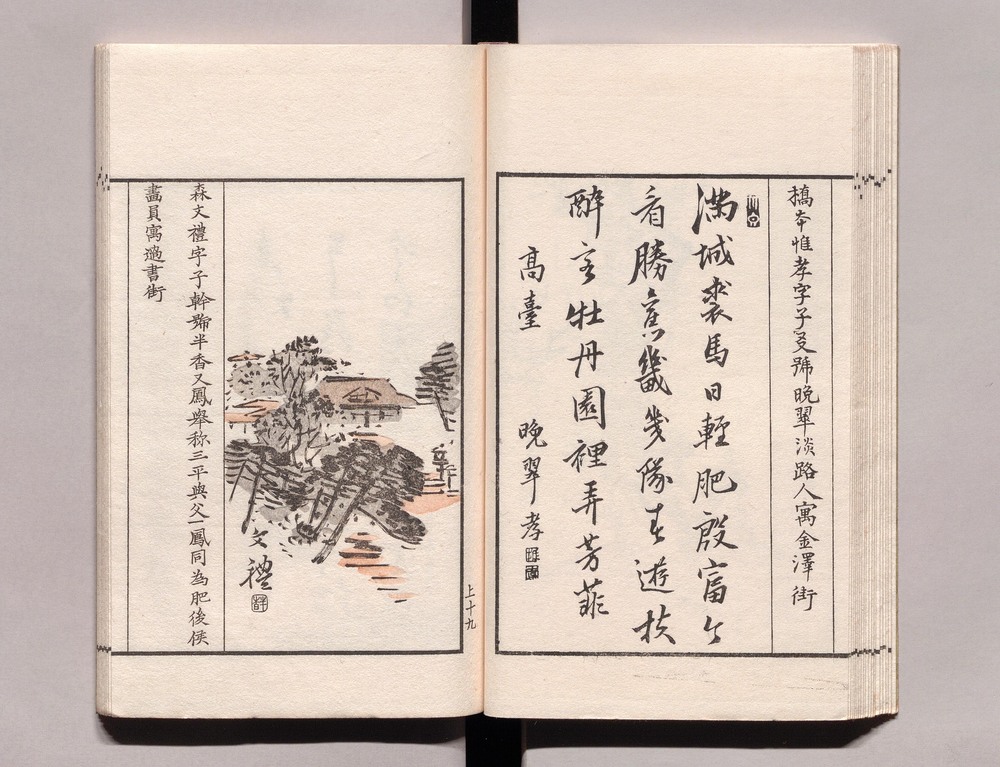 橋本惟孝字子叐號晩翠淡路人寓金澤街
滿城裘馬日輕肥殷富公
看勝舊畿幾隊去遊扶
醉客牡丹園裡弄芳菲
高臺 晩翠孝
上十九
文禮
森文禮字子幹號半香又鳳舉称三平與父一鳳同為肥後侯
畵員寓過書街